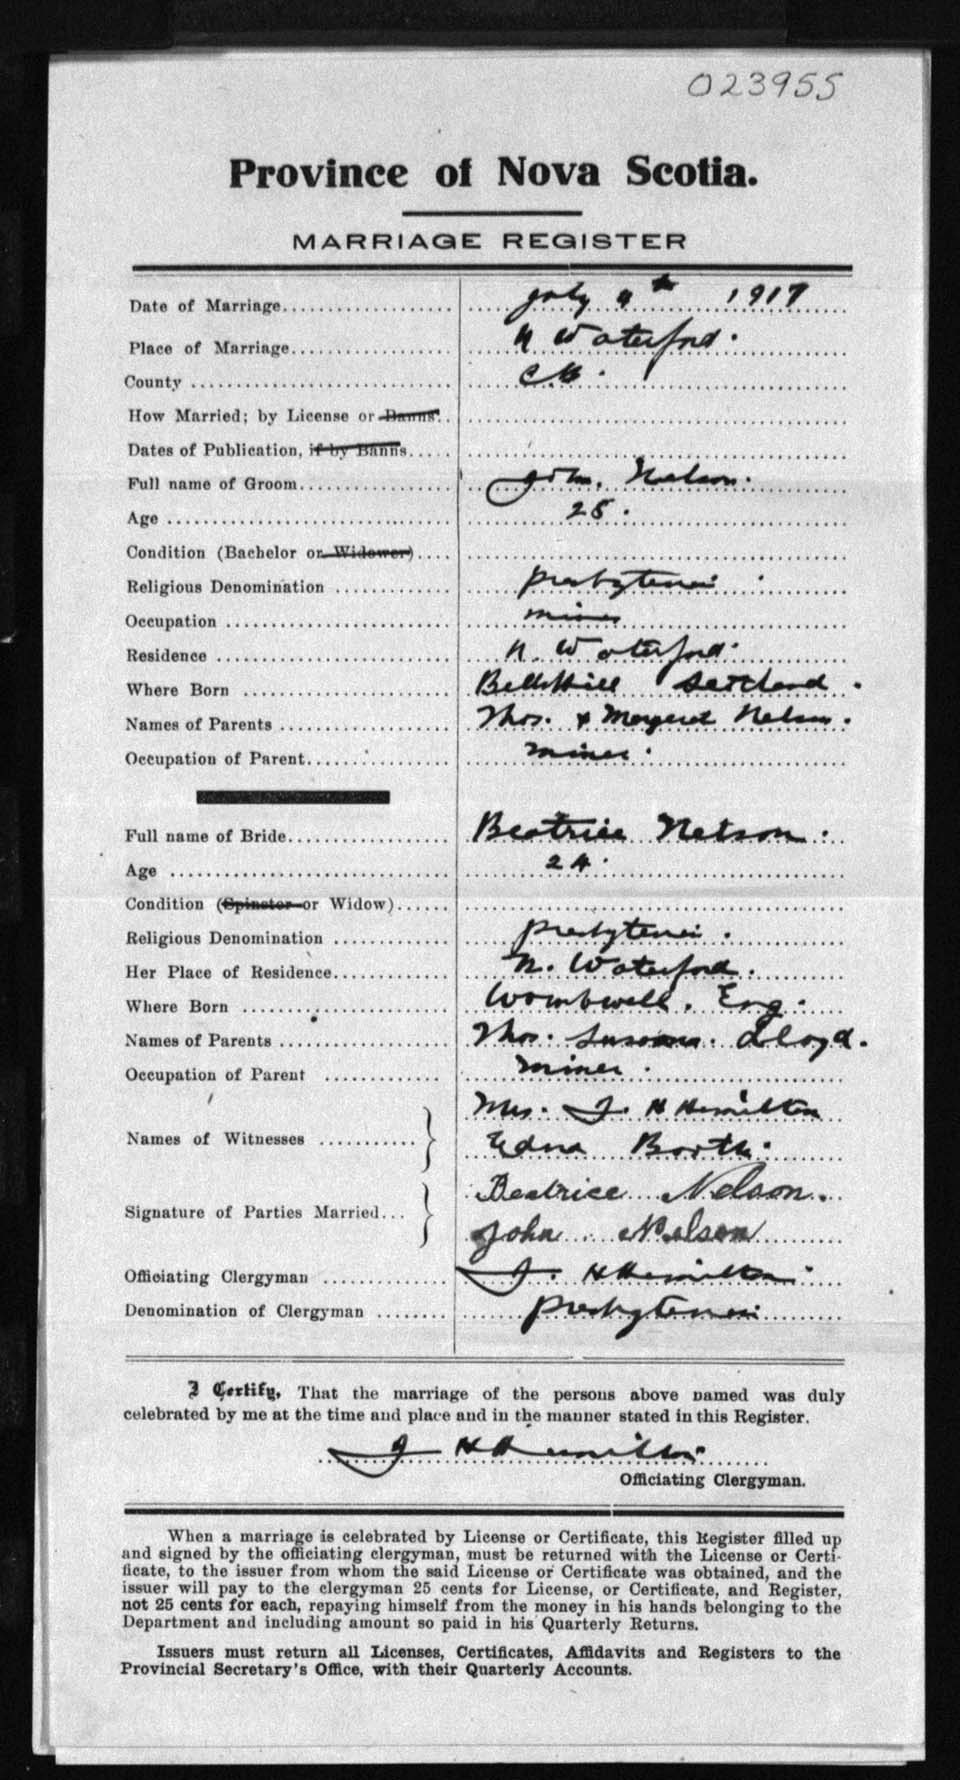 023955
Province of Nova Scotia.
MARRIAGE REGISTER
Date of Marriage July 4th 1917
Place of Marriage N Waterford.
County CB.
How Married; by License or Banns.
Dates of Publication, if by Banns
Full name of Groom John Nelson.
Age 25.
Condition (Bachelor or Widower)
Religious Denomination Presbyterian
Occupation miner
Residence N. Waterford.
Where Born Bellshill Scotland.
Names of Parents Thos. & Margaret Nelson.
Occupation of Parent miner.
Full name of Bride Beatrice Nelson.
Age 24.
Condition (Spinster or Widow)
Religious Denomination Presbyterian.
Her Place of Residence N. Waterford.
Where Born Wombwell, Eng.
Names of Parents Thos. Lloyd.
Occupation of Parent miner.
Mrs. J. H Hamilton
Names of Witnesses
Edna Booth.
Beatrice Nelson.
Signature of Parties Married
John Nelson
Officiating Clergyman J. H Hamilton
Denomination of Clergyman Presbyterian
I Certify, That the marriage of the persons above named was duly
celebrated by me at the time and place and in the manner stated in this Register.
J H Hamilton
Officiating Clergyman.
When a marriage is celebrated by License or Certificate, this Register filled up
and signed by the officiating clergyman, must be returned with the License or Certi-
ficate, to the issuer from whom the said License or Certificate was obtained, and the
issuer will pay to the clergyman 25 cents for License, or Certificate, and Register,
not 25 cents for each, repaying himself from the money in his hands belonging to the
Department and including amount so paid in his Quarterly Returns.
Issuers must return all Licenses, Certificates, Affidavits and Registers to the
Provincial Secretary's Office, with their Quarterly Accounts.